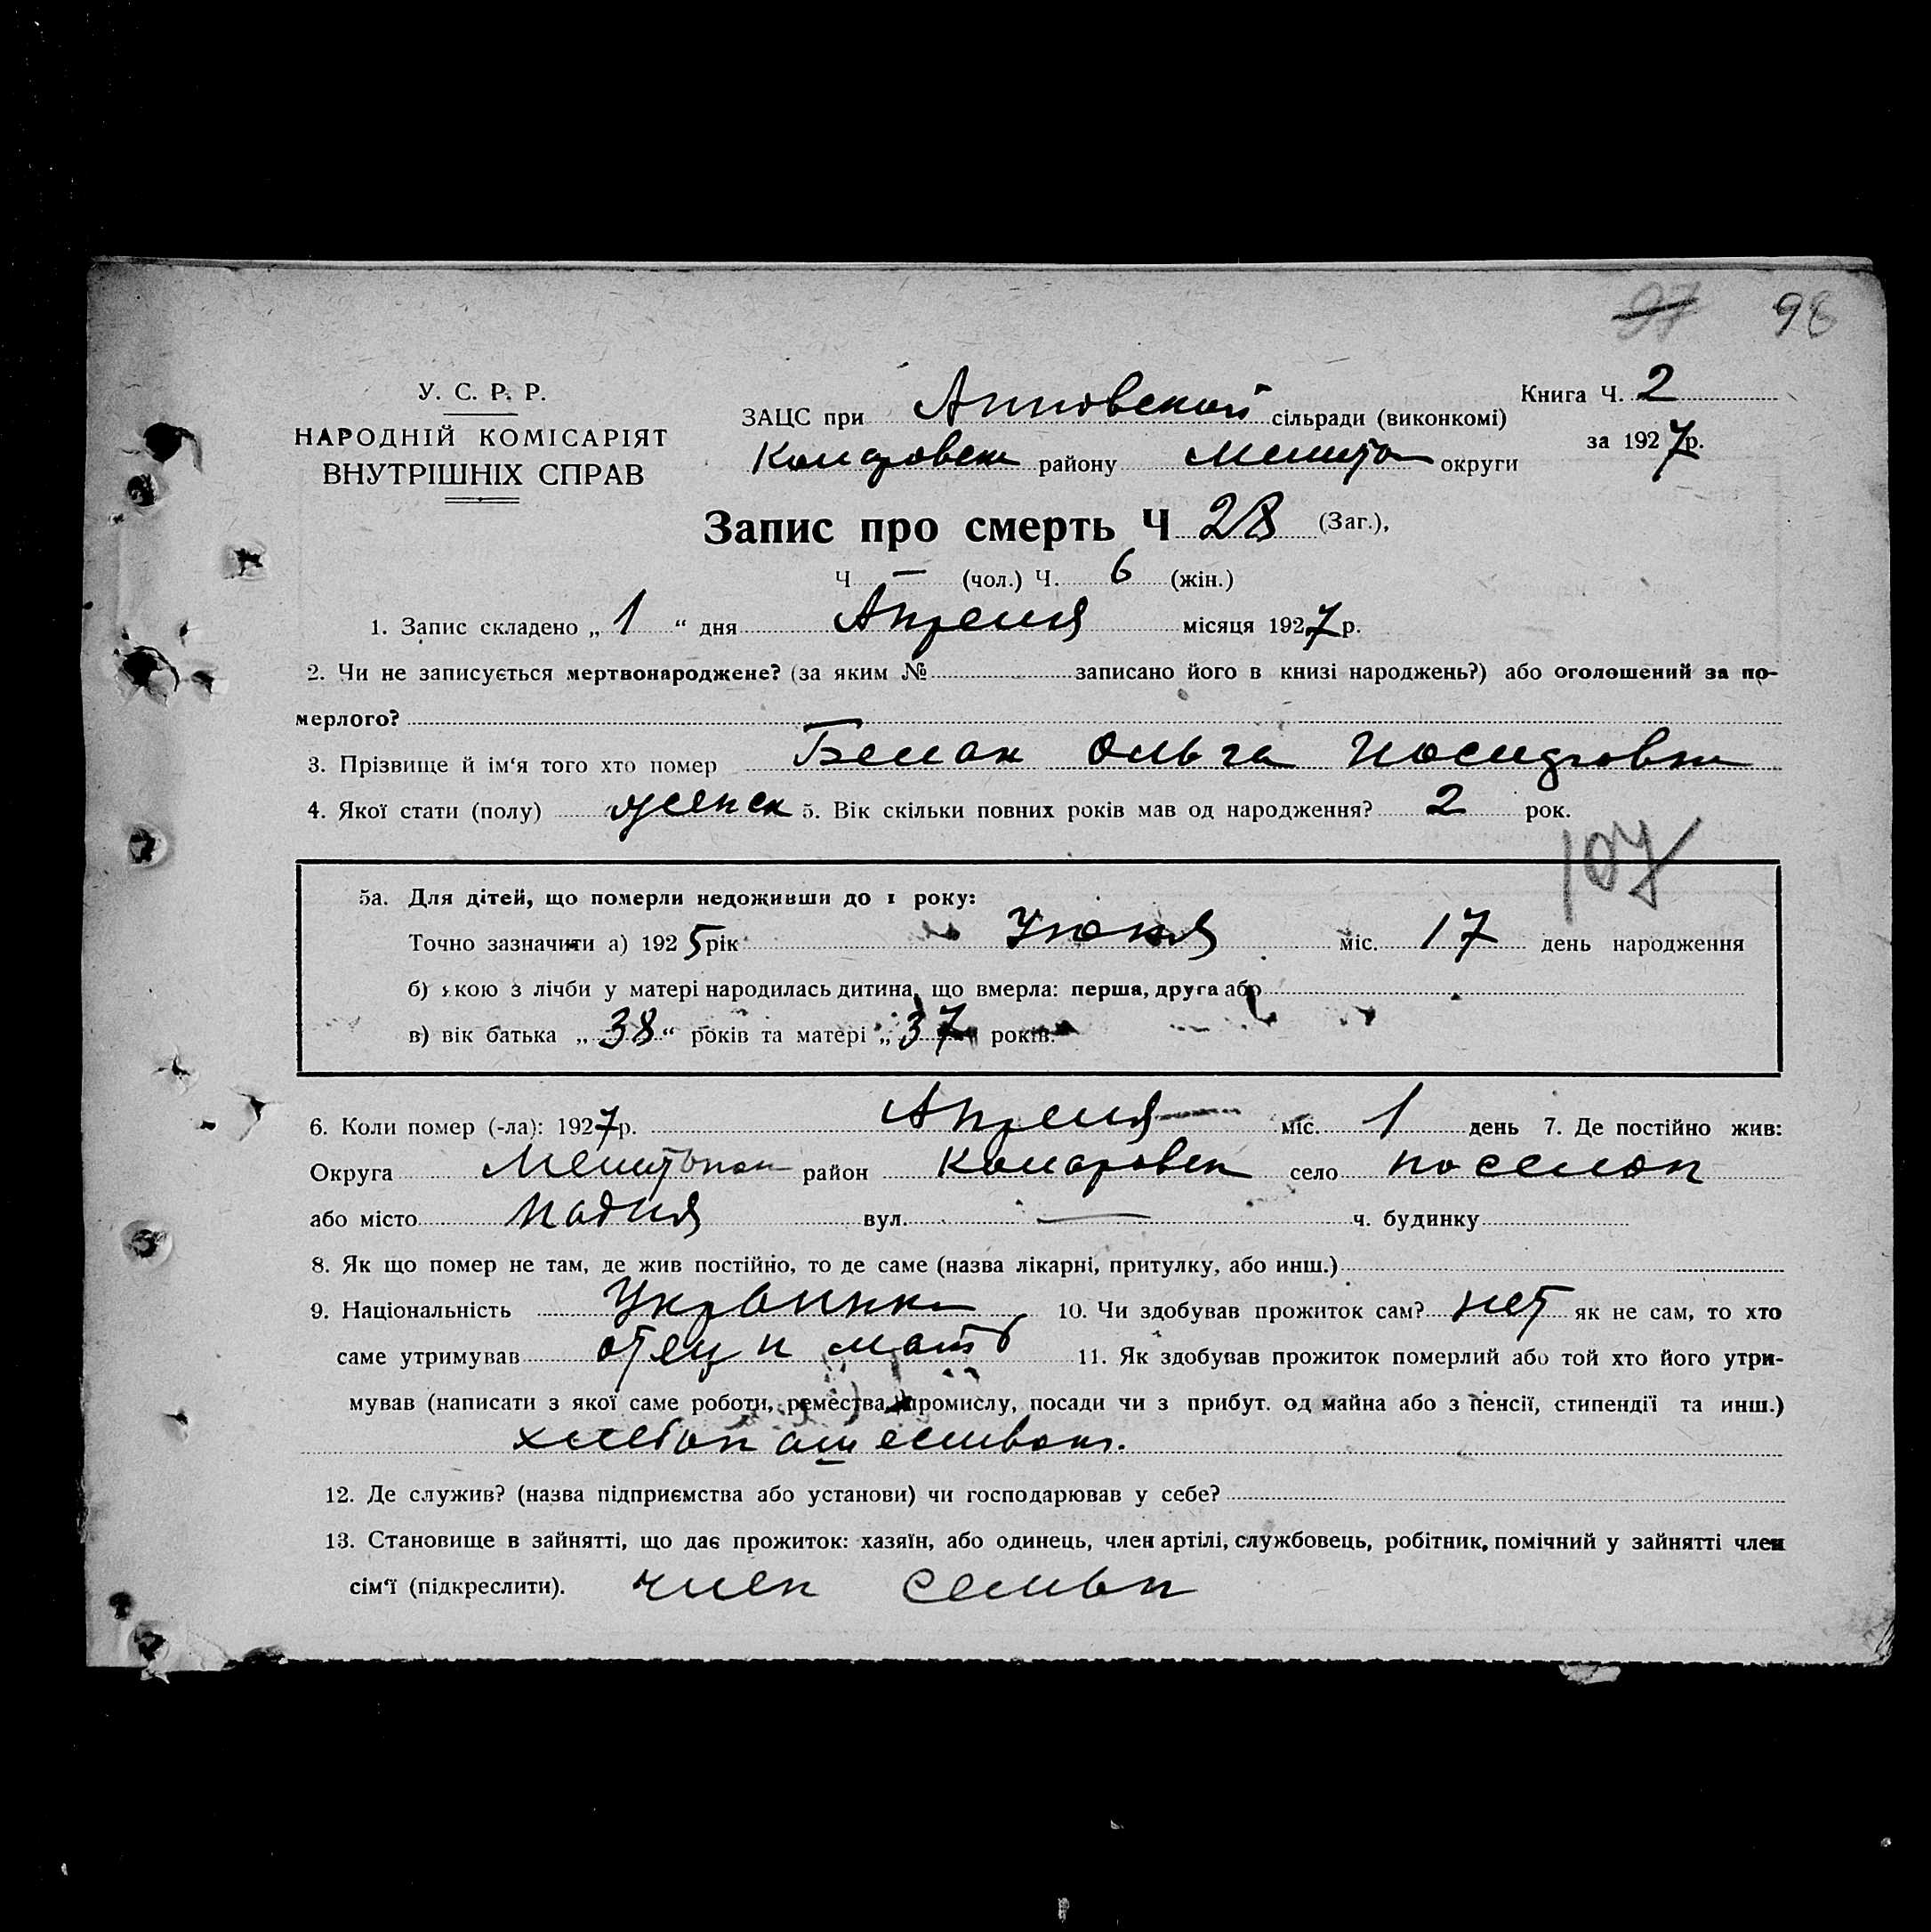 97 98
У. С. Р. Р.
НАРОДНІЙ КОМІСАРІЯТ
ВНУТРІШНІХ СПРАВ
ЗАЦС при Анновской сільради (виконкомі)
Книга Ч. 2
за 1927 р.
району Мелито округи
Запис про смерть Ч 28 (Заг.),
Ч — (чол.) Ч. 6 (жін.)
1. Запис складено „ 1 “ дня Апреля місяця 1927 р.
2. Чи не записується мертвонароджене? (за яким № записано його в книзі народжень?) або оголошений за по-
мерлого?
3. Прізвище й ім‘я того хто помер Ольга
4. Якої стати (полу) женск 5. Вік скільки повних років мав од народження? 2 рок.
107
5а. Для дітей, що померли недоживши до 1 року:
Точно зазначити а) 1925 рік міс. 17 день народження
б) якою з лічби у матері народилась дитина, що вмерла: перша, друга або
в) вік батька „ 38 “ років та матері „ 37 років.
6. Коли помер (-ла): 1927 р. Апреля міс. 1 день 7. Де постійно жив:
Округа Мелитопол район Комаровск село поселок
або місто Надия вул. — ч. будинку
8. Як що помер не там, де жив постійно, то де саме (назва лікарні, притулку, або инш.)
9. Національність Украинка 10. Чи здобував прожиток сам? нет як не сам, то хто
саме утримував отец и мать 11. Як здобував прожиток померлий або той хто його утри-
мував (написати з якої саме роботи, ремества, промислу, посади чи з прибут. од майна або з пенсії, стипендії та инш.)
12. Де служив? (назва підприємства або установи) чи господарював у себе?
13. Становище в зайнятті, що дає прожиток: хазяїн, або одинець, член артілі, службовець, робітник, помічний у зайнятті член
сім‘ї (підкреслити). член семьи